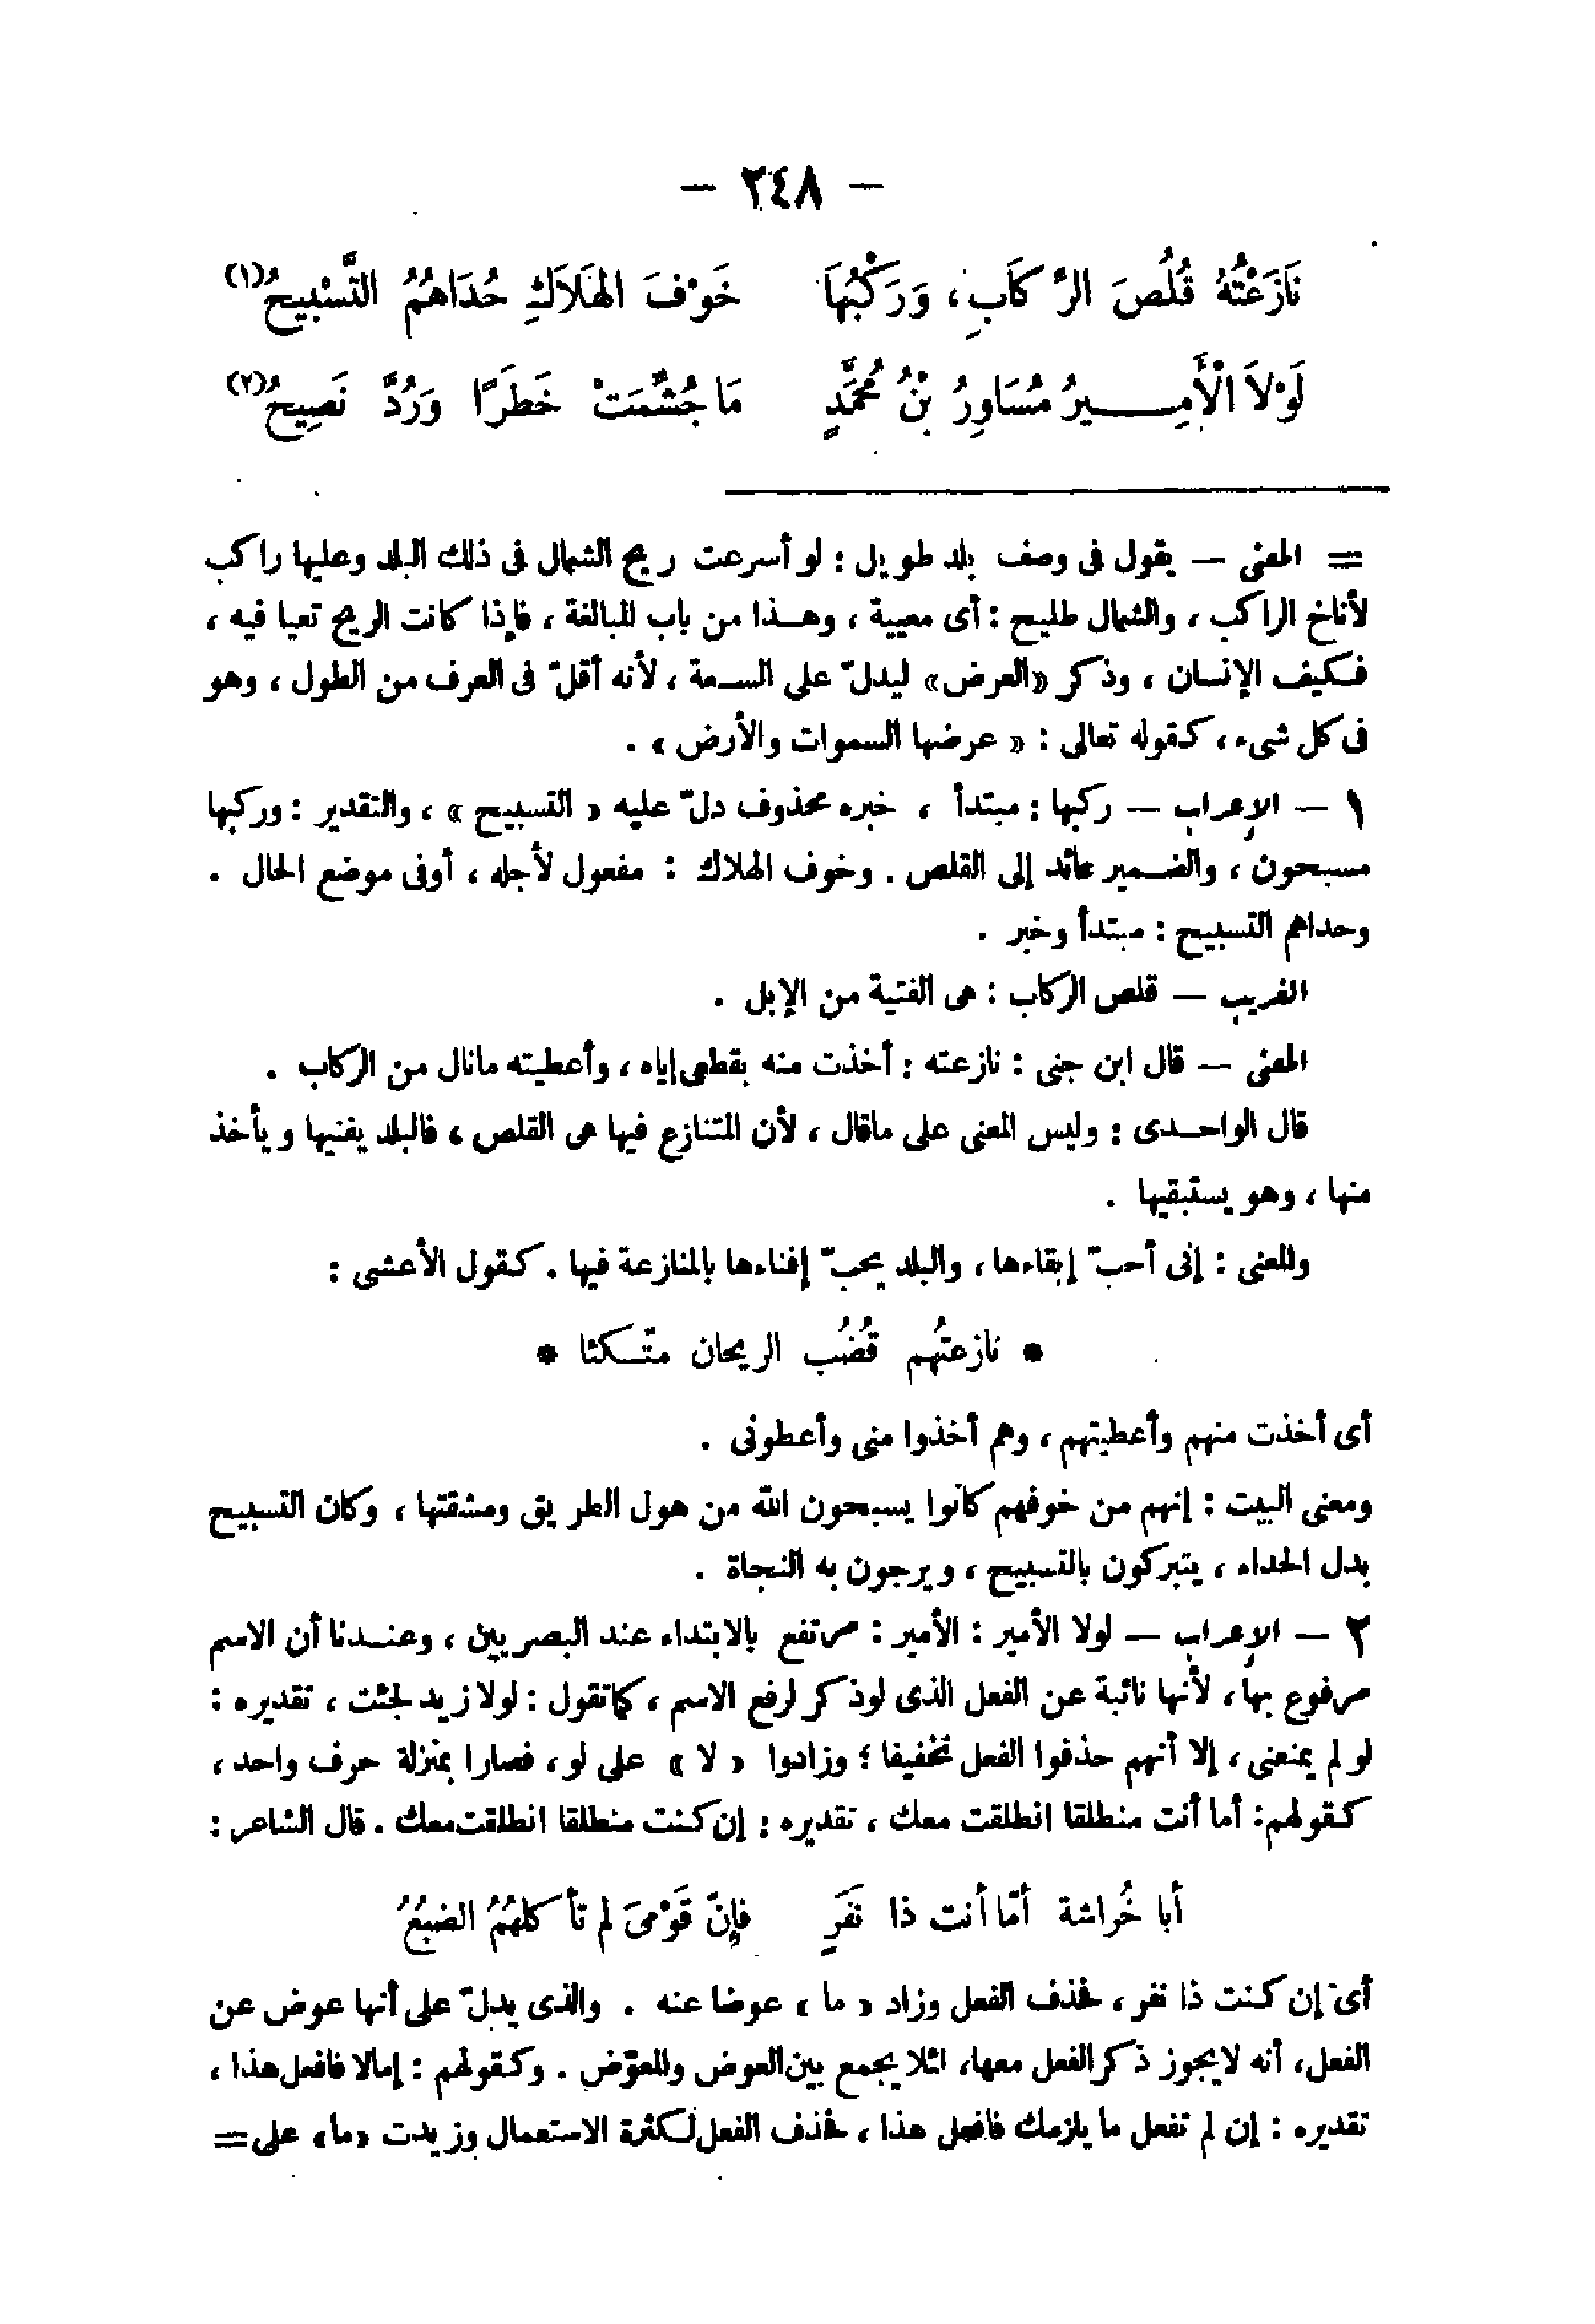 — ٢٤٨ —
نَازَعْتُهُ قُلُصَ الرِّكَابِ، وَرَكْبُهَا خَوْفَ الْهَلَاكِ حُدَاهُمُ التَّسْبِيحُ(١)
لَوْلَا الْأَمِيرُ مُسَاوِرُ بْنُ مُحَمَّدٍ مَا جُشِّمَتْ خَطَرًا وَرُدَّ نَصِيحُ(٢)
= المعنى — يقول فى وصف بلد طويل : لو أسرعت ريح الشمال فى ذلك البلد وعليها راكب
لأناخ الراكب ، والشمال طليح : أى معيية ، وهذا من باب المبالغة ، فإذا كانت الريح تعيا فيه ،
فكيف الإنسان ، وذكر «العرض» ليدلّ على السعة ، لأنه أقلّ فى العرف من الطول ، وهو
فى كل شىء ، كقوله تعالى : « عرضها السموات والأرض » .
١ — الإعراب — ركبها : مبتدأ ، خبره محذوف دلّ عليه « التسبيح » ، والتقدير : وركبها
مسبحون ، والضمير عائد إلى القلص . وخوف الهلاك : مفعول لأجله ، أوفى موضع الحال .
وحداهم التسبيح : مبتدأ وخبر .
الغريب — قلص الركاب : هى الفتية من الإبل .
المعنى — قال ابن جنى : نازعته : أخذت منه بقطعى إياه ، وأعطيته مانال من الركاب .
قال الواحدى : وليس المعنى على ماقال ، لأن المتنازع فيها هى القلص ، فالبلد يفنيها ويأخذ
منها ، وهو يستبقيها .
والمعنى : إنى أحبّ إبقاءها ، والبلد يحبّ إفناءها بالمنازعة فيها . كقول الأعشى :
* نازعتُهم قُضُب الريحان متّكئا *
أى أخذت منهم وأعطيتهم ، وهم أخذوا منى وأعطونى .
ومعنى البيت : إنهم من خوفهم كانوا يسبحون الله من هول الطريق ومشقتها ، وكان التسبيح
بدل الحداء ، يتبركون بالتسبيح ، ويرجون به النجاة .
٢ — الإعراب — لولا الأمير : الأمير : مرتفع بالابتداء عند البصريين ، وعندنا أن الاسم
مرفوع بها ، لأنها نائبة عن الفعل الذى لو ذكر لرفع الاسم ، كما تقول : لولا زيد لجئت ، تقديره :
لو لم يمنعنى ، إلا أنهم حذفوا الفعل تخفيفا ؛ وزادوا « لا » على لو ، فصارا بمنزلة حرف واحد ،
كقولهم : أما أنت منطلقا انطلقت معك ، تقديره : إن كنت منطلقا انطلقت معك . قال الشاعر :
أبا خُراشة أمّا أنت ذا نَفَرٍ فإنّ قَوْمِىَ لم تأكلهُمُ الضبُعُ
أى إن كنت ذا نفر ، فحذف الفعل وزاد « ما » عوضا عنه . والذى يدلّ على أنها عوض عن
الفعل ، أنه لا يجوز ذكر الفعل معها ، لئلا يجمع بين العوض والمعوّض . وكقولهم : إمالا فافعل هذا ،
تقديره : إن لم تفعل ما يلزمك فافعل هذا ، فحذف الفعل لكثرة الاستعمال وزيدت «ما» على =